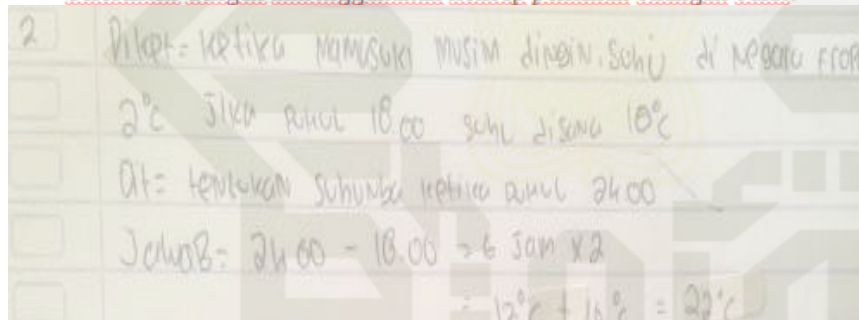 2 Diket = Ketika mamasuki musim dingin. suhu di negara Erop
2°C Jika pukul 18.00 suhu disana 10°C
Dit = tentukan suhunya ketika pukul 24.00
Jawab = 24.00 - 18.00 = 6 Jam x 2
= 12°C + 10°C = 22°C